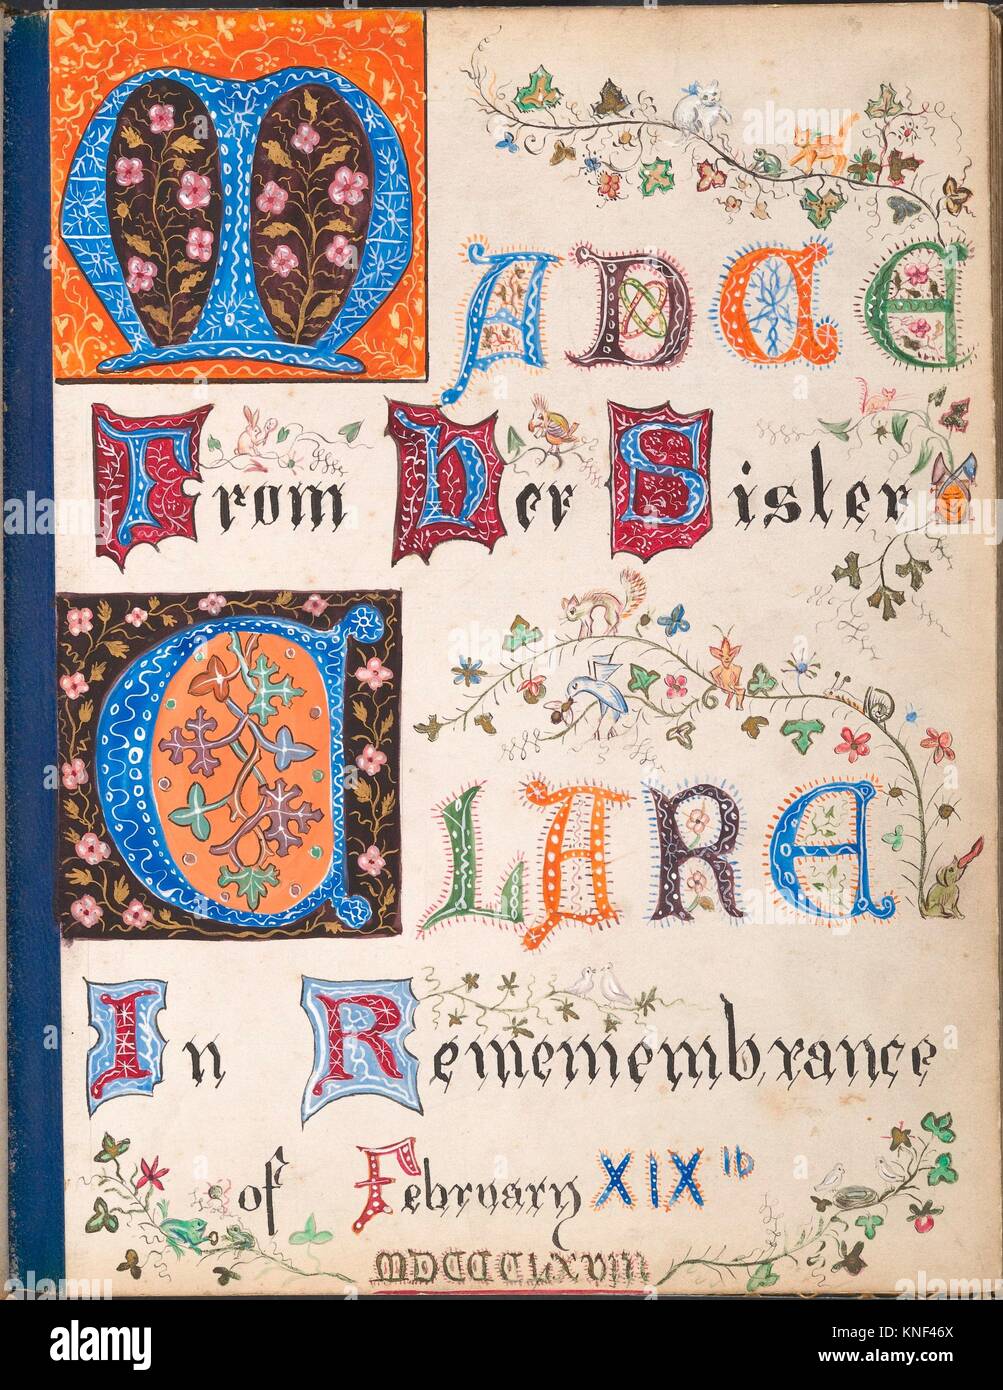 MADGE
From Her Sister
CLARE
In Rememembrance
of February XIXth
MDCCCLXVIII
alamy
Image ID: KNF46X
www.alamy.com